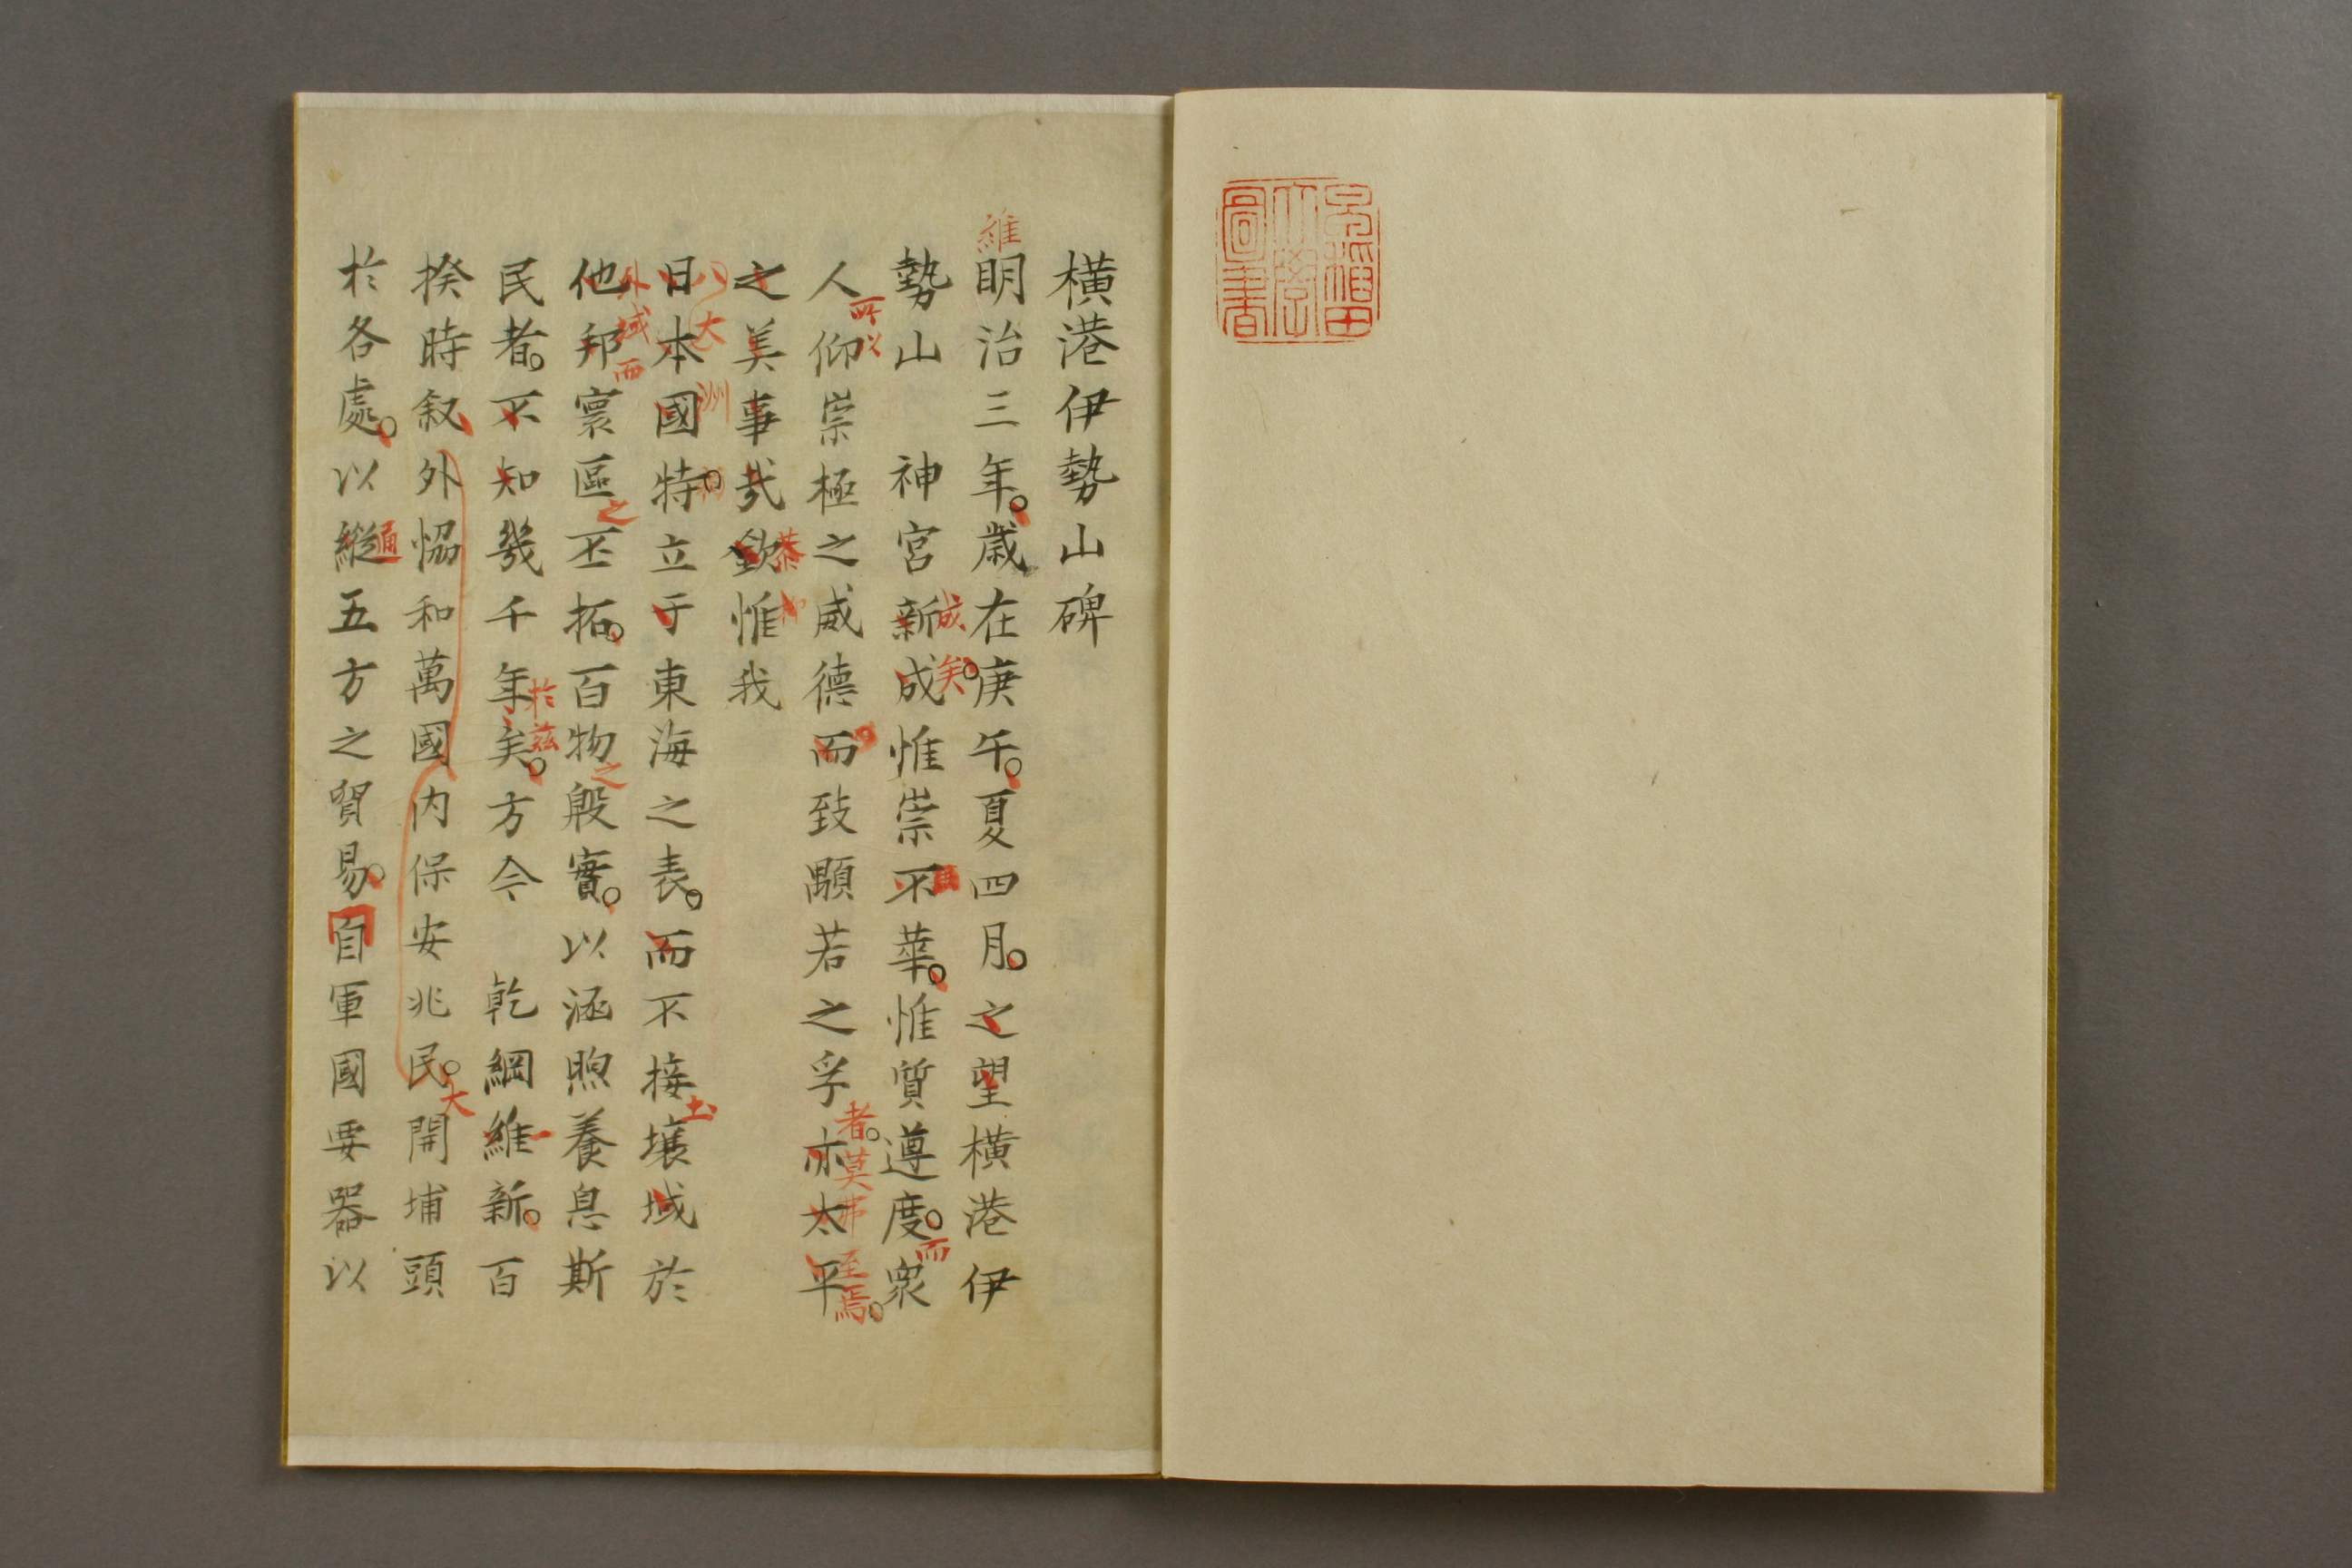 早稲田
大學
圖書
橫港伊勢山碑
維
明治三年。歲在庚午。夏四月。之望橫港伊
成矣。
而
勢山　神宮新成惟崇不華。惟質遵度。衆
所以
者。莫弗至焉。
人仰崇極之威德而致顒若之孚亦太平
恭
之美事哉欽惟我
八大洲
土
日本國特。立于東海之表。而不接壤域於
外域而
之
之
他邦寰區丕拓。百物殷實。以涵煦養息斯
於茲
民者。不知幾千年矣。方今　乾綱維新。百
大
揆時叙外恊和萬國内保安兆民。開埔頭
通
於各處。以縱五方之貿易。自軍國要器以